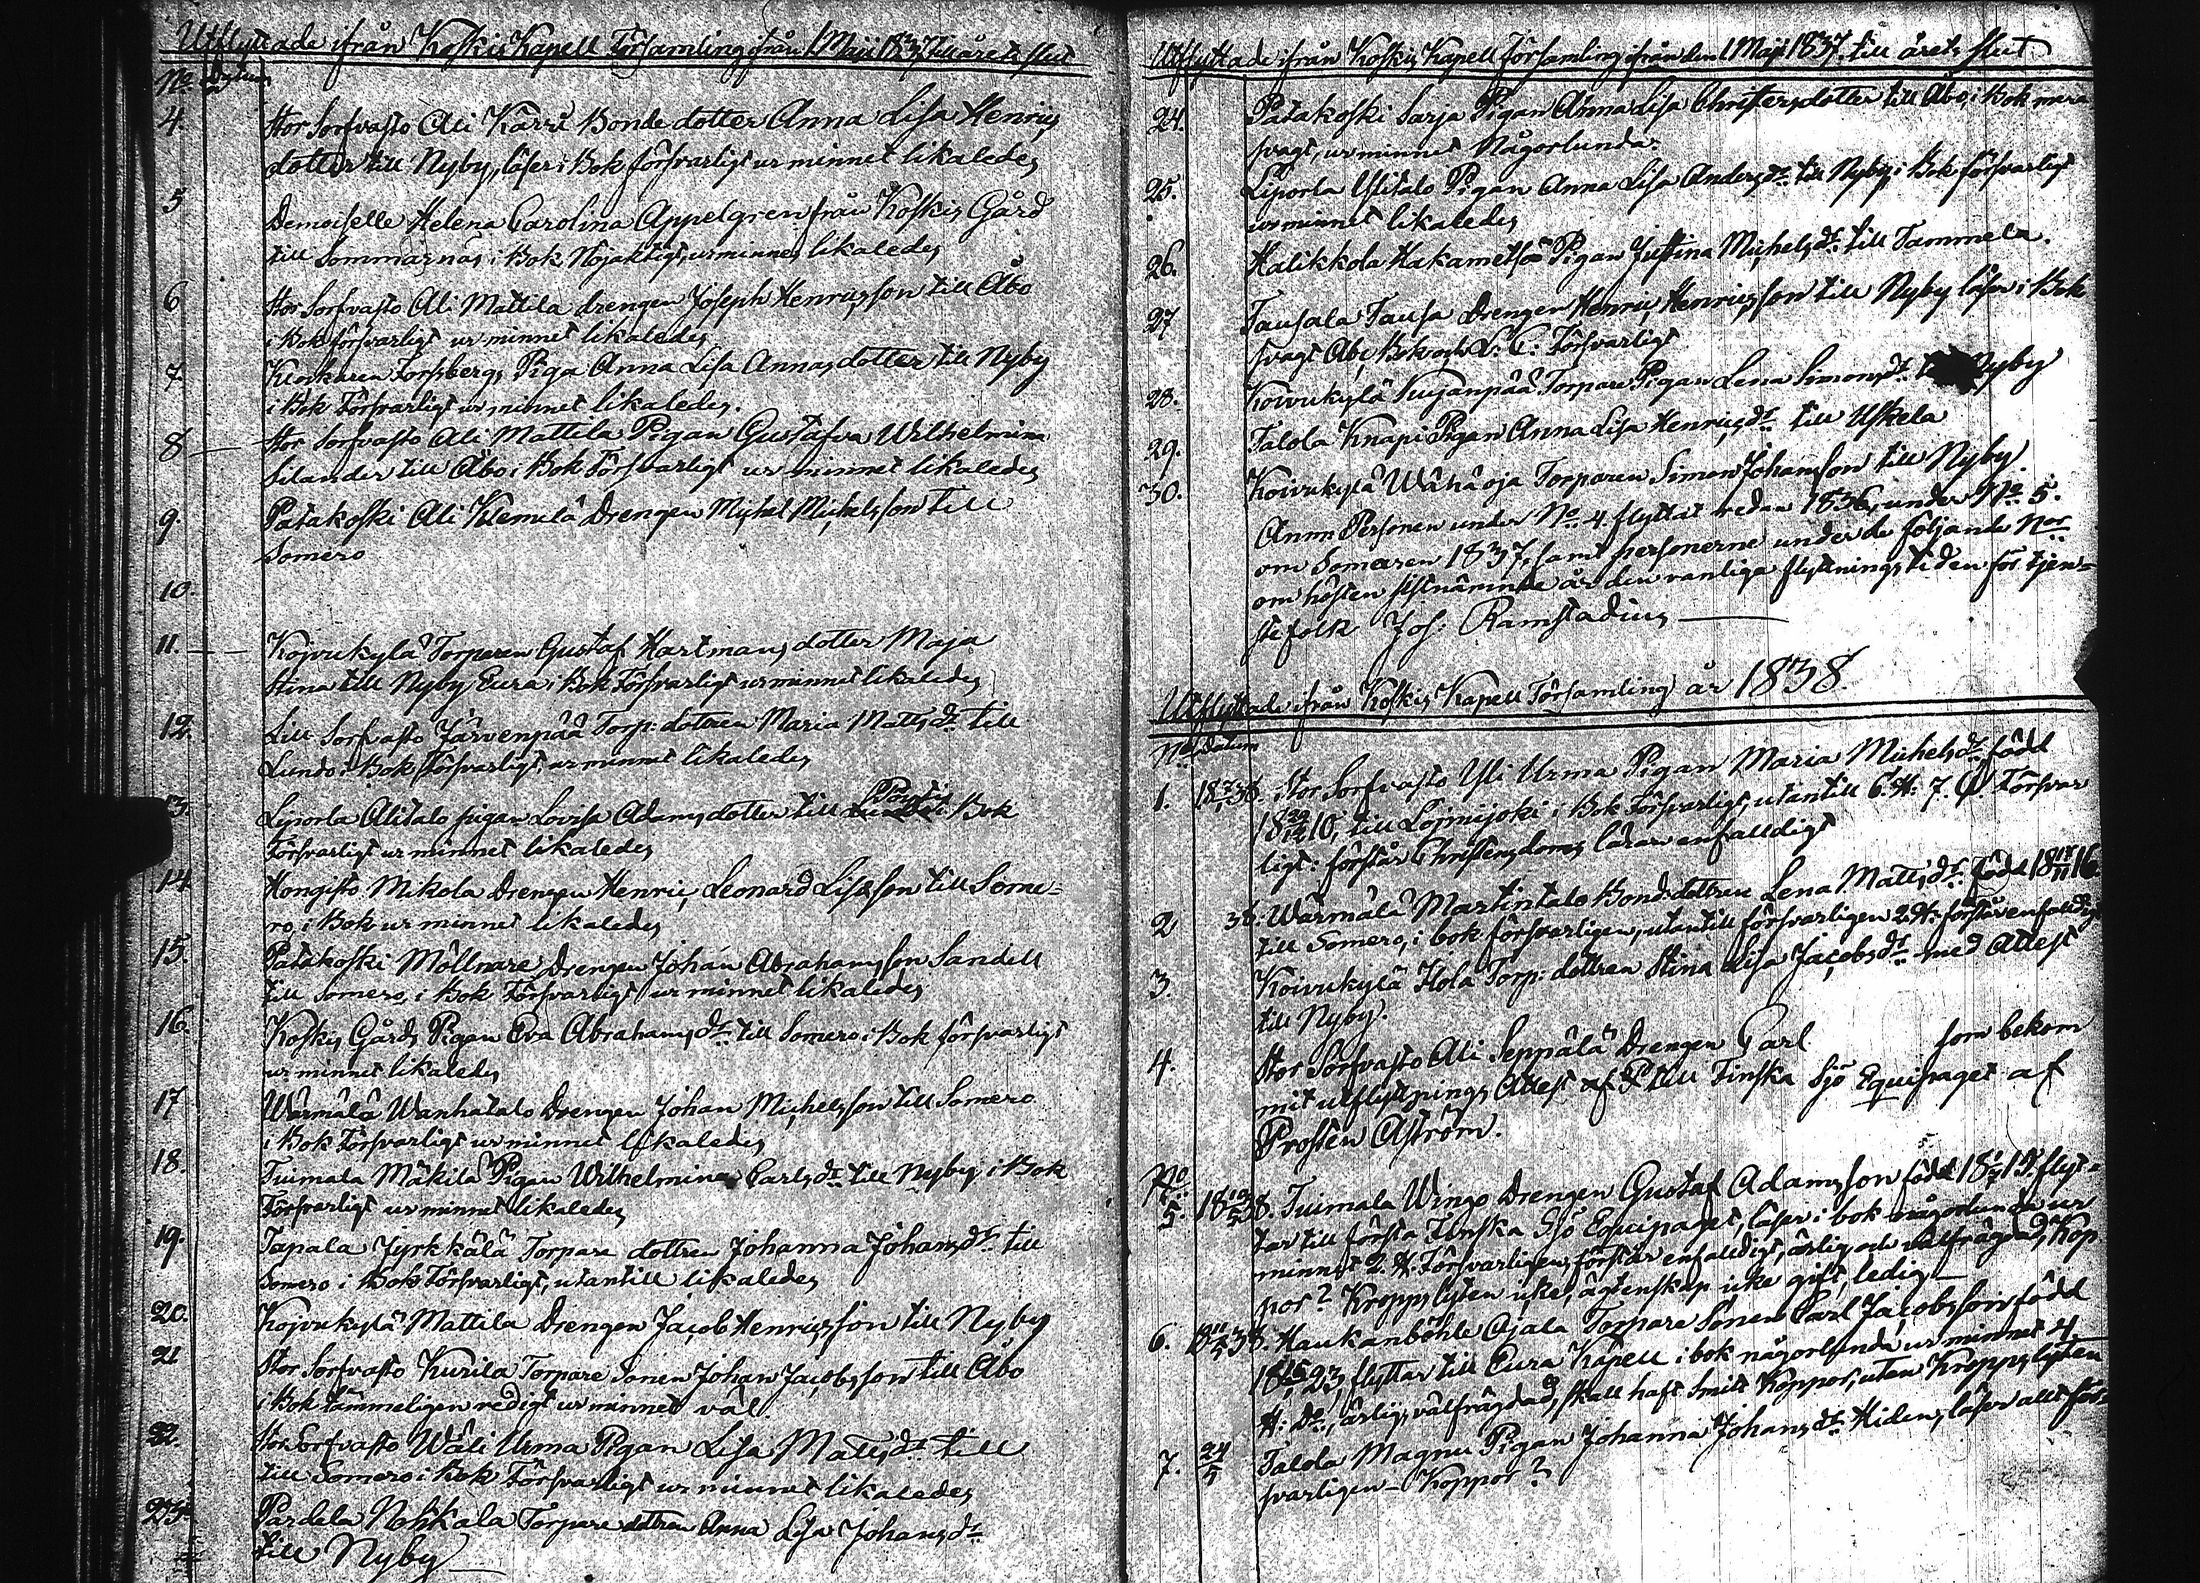 Utflyttade ifrån Koskis Kapell Församling ifrån 1 Maji 1837 till årets slut
No Datum
4. Stor Sorfvasto Ali Karri Bonde dotter Anna Lisa Henrics
dotter till Nyby, läser i Bok försvarligt ur minnet likaledes
5 Demoiselle Helena Carolina Appelgren från Koskis Gård
till Sommarnäs, i Bok Nöjaktigt, ur minnet likaledes
6 Stor Sorfvasto Ali Mattila drengen Joseph Henricsson till Åbo
i Bok försvarligt ur minnet likaledes
7. Klockaren Forsbergs Piga Anna Lisa Annasdotter till Nyby
i Bok Försvarligt ur minnet likaledes.
8 Stor Sorfvasto Ali Mattila Pigan Gustafva Wilhelmina
Silander till Åbo i Bok Försvarligt ur minnet likaledes
9. Patakoski Ali Klemelä Drengen Michel Michelsson till
Somero
10.
11. Koivukylä Torparen Gustaf Hartmans dotter Maja
Stina till Nyby Eura i Bok Försvarligt ur minnet likaledes
12. Lill Sorfvasto Järvenpää Torp: dottren Maria Mattsdr till
Lundo i Bok Försvarligt, ur minnet likaledes
13. Liporla Alitalo pigan Lovisa Adamsdotter till Pöytis i Bok
Försvarligt ur minnet likaledes
14 Hongisto Mikola Drengen Henric Leonard Lisasson till Some-
ro, i Bok ur minnet likaledes
15. Patakoski Möllnare Drengen Johan Abrahamsson Sandell
till Somero, i Bok Försvarligt ur minnet likaledes
16. Koskis Gårds Pigan Eva Abrahamsdr till Somero i Bok försvarligt
ur minnet likaledes
17 Wärmälä Wanhatalo Drengen Johan Michelsson till Somero
i Bok Försvarligt ur minnet likaledes
18. Tuimala Mäkilä Pigan Wilhelmina Carlsdr till Nyby i Bok
Försvarligt ur minnet likaledes
19. Tapala Jyrkkälä Torpare dottren Johanna Johansdr till
Somero i Bok Försvarligt, utantill likaledes
20. Koivukylä Mattila Drengen Jacob Henricsson till Nyby
21 Stor Sorfvasto Kurila Torpare Sonen Johan Jacobsson till Åbo
i Bok tämmeligen redigt ur minnet väl.
22. Stor Sorfvasto Wäli Urma Pigan Lisa Mattsdr till
till Somero i Bok Försvarligt ur minnet likaledes
23. Pardela Nohkala Torpare dottren Anna Lisa Johansdr
till Nyby
Utflyttade ifrån Koskis Kapell Församling ifrån den 1 Maji 1837 till årets slut
24. Patakoski Sarja Pigan Anna Lisa Christersdotter till Åbo, i Bok mera
svagt, ur minnet Någorlunda.
25. Liporla Ylitalo Pigan Anna Lisa Andersdr till Nyby, i Bok försvarligt
ur minnet likaledes
26. Halikkola Hakametsä Pigan Justina Michelsdr till Tammela.
27 Tausala Tausa Drengen Henric Henricsson till Nyby läser i Bok
svagt Abc Bok och L: C: Försvarligt
28. Koivukylä Kujanpää Torpare Pigan Lena Simonsdr Nyby
29. Talola Knapi Pigan Anna Lisa Henricsdr till Uskela
30. Koivukylä Wähäoja Torparen Simon Johansson till Nyby.
Anm Personen under No 4 flyttat redan 1836, under No 5.
om Somaren 1837, samt personerne under de följande Nor
om hösten sistnämnde år den vanliga flyttningstiden för tjen-
stefolk Jos: Ramstadius
Utflyttade ifrån Koskis Kapell Församling år 1838.
No Datum
1. 18 38. Stor Sorfvasto Yli Urma Pigan Maria Michelsdr, född
18 10, till Loimijoki i Bok Försvarligt, utantill 6. H: 7. Försvar
ligt: förstår Christendoms läran enfalldigt
2 38. Wärmälä Martintalo Bond: dottren Lena Mattsdr född 18 16
till Somero, i bok försvarligen, utantill försvarligen 2. H: förstår enfalldigt
3. Koivukylä Hola Torp: dottren Stina Lisa Jacobsdr med attest
till Nyby.
4. Stor Sorfvasto Ali Seppälä Drengen Carl som bekom
mit utflyttnings Attest till Finska Sjö Equipaget af
Prosten Aström.
No
5. 18 38. Tuimala Wingo Drengen Gustaf Adamsson född 18 19. flyt-
tar till första Finska Sjö Equipaget, läser i bok någorlunda ur
minnet 2. H. Försvarligen, förstår enfalldigt, ärlig och välfrägdad, Kop
por? Kroppslyten icke, ägtenskap icke gift, ledig
6. 38. Haukanböhle Ojala Torpare Sonen Carl Jacobsson född
18 23, flyttar till Eura Kapell i bok någorlunda, ur minnet 4
H: Do, ärlig, välfrägdad, skall haft Smitt Koppor, utan Kroppslyten
7. 24/5 Talola Magnu Pigan Johanna Johansdr Hiden, läser allt för-
svarligen - Koppor?